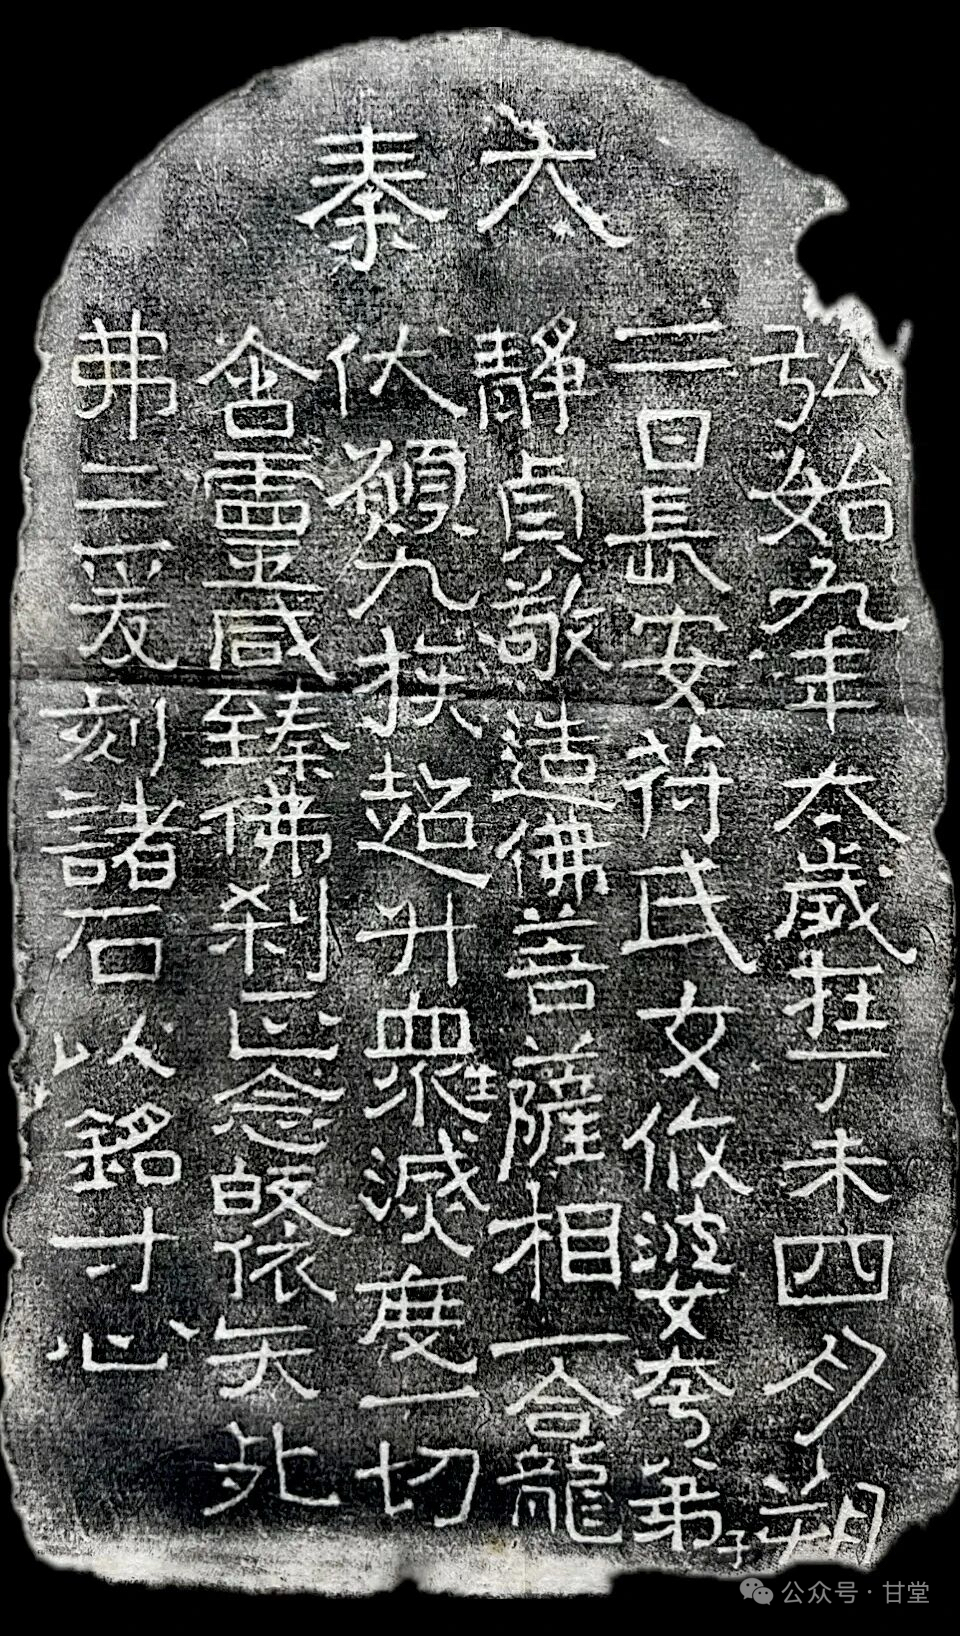 太秦
弘始九年太歲在丁未四月朔
三日長安苻氏女攸婆夸弟子
靜貞敬造佛菩薩相一龕
伏願九族超升衆難滅度一切
含靈咸臻佛刹正念皈依矢死
弗二爰刻諸石以銘寸心
公众号·甘堂